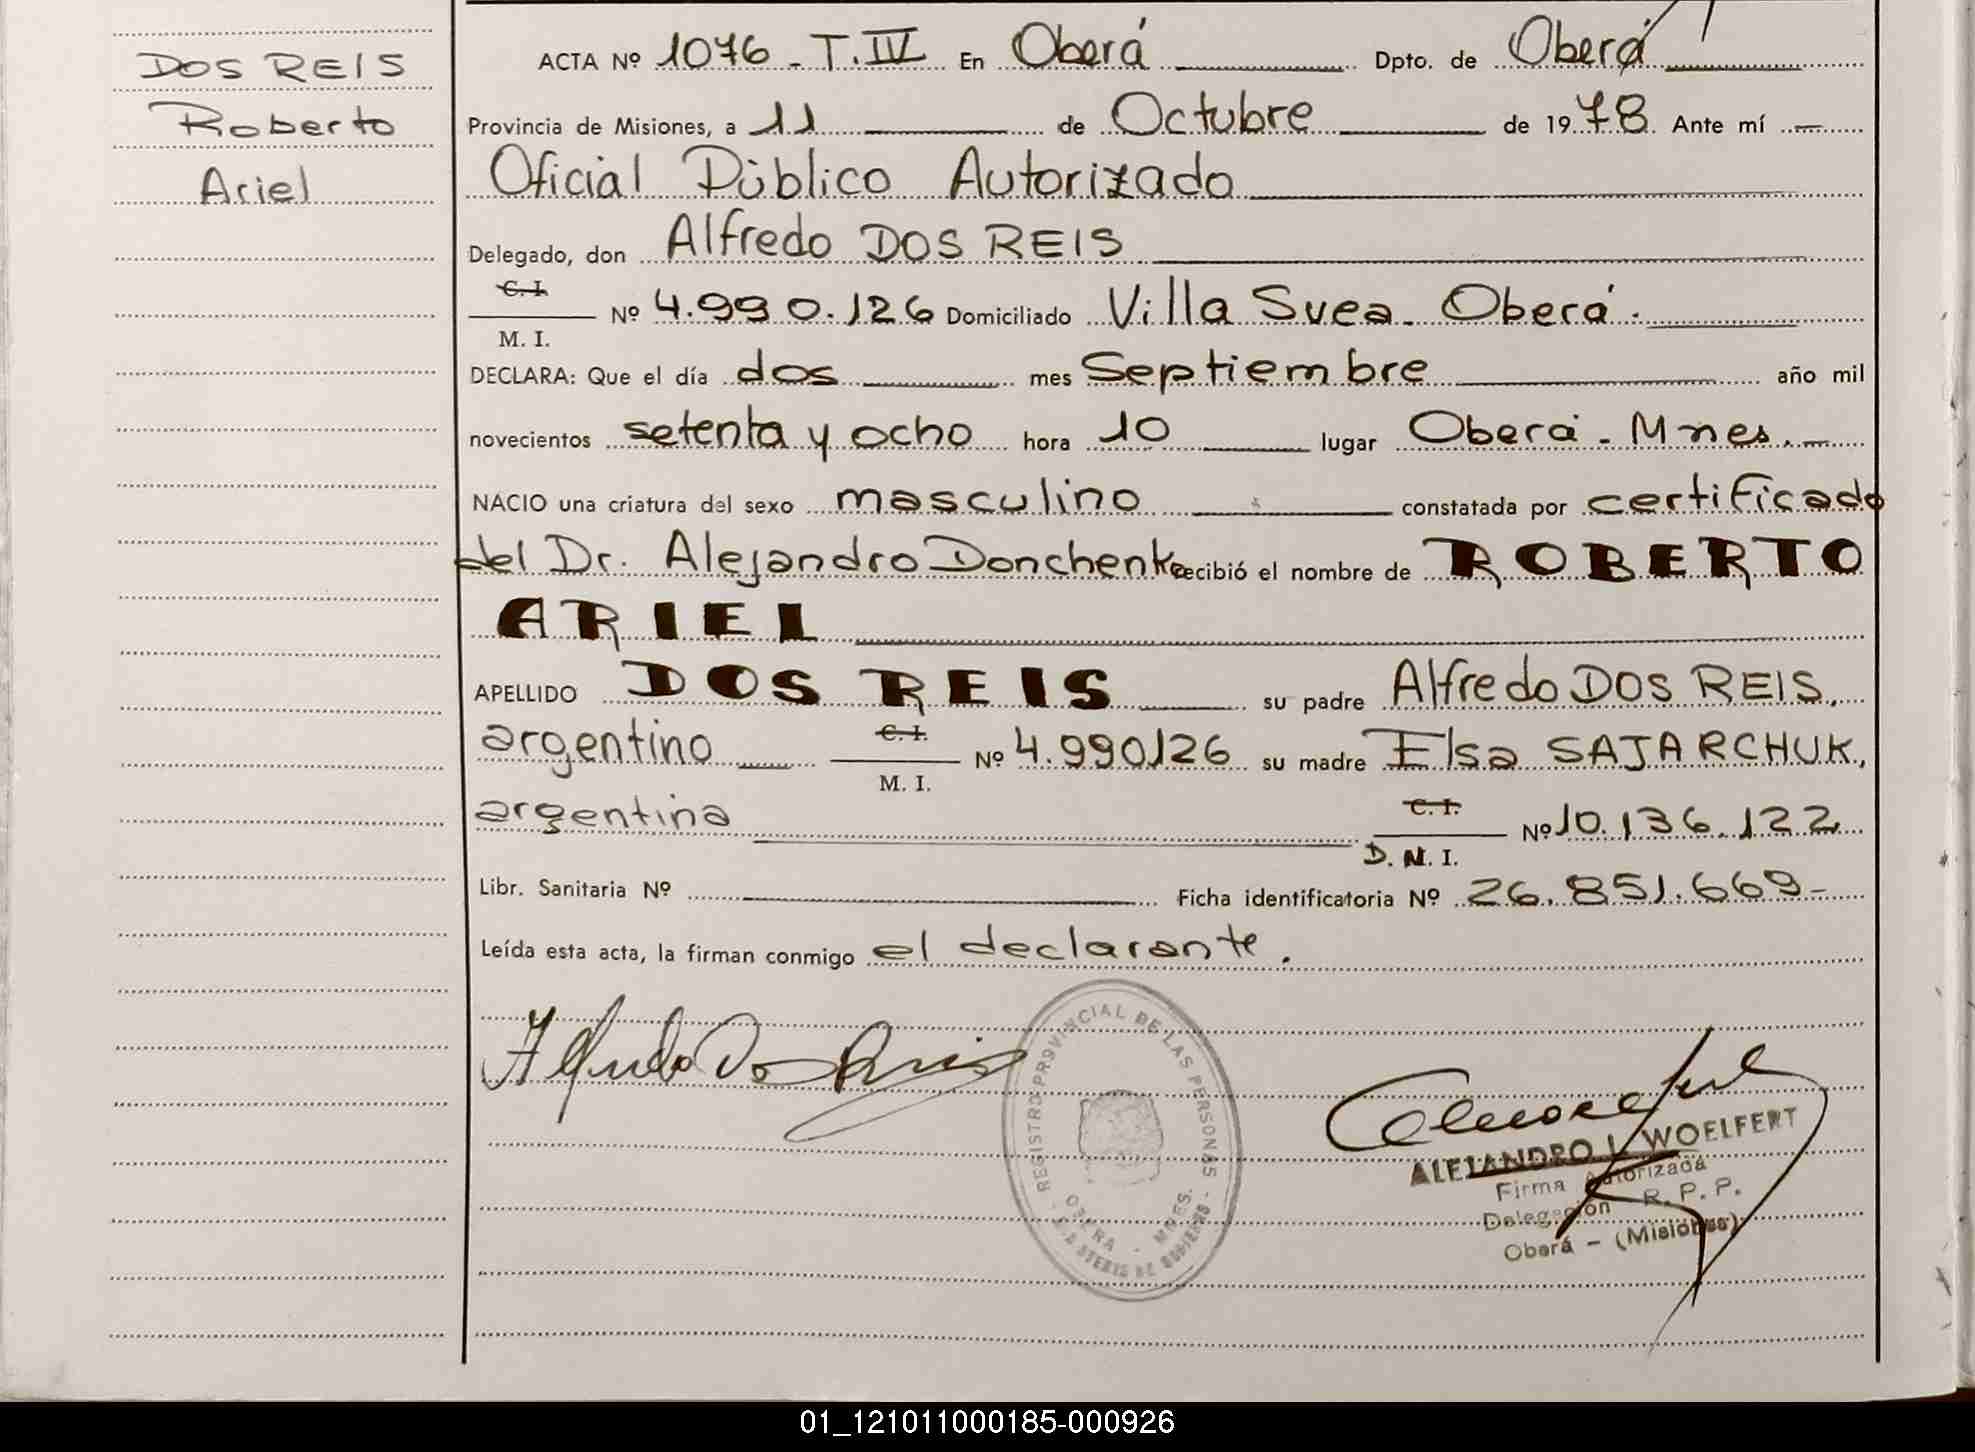 DOS REIS
Roberto
Ariel
ACTA Nº 1076 - T. IV En Oberá Dpto. de Oberá
Provincia de Misiones, a 11 de Octubre de 1978. Ante mí
Oficial Público Autorizado
Delegado, don Alfredo DOS REIS
C. I.
M. I.
Nº 4.990.126 Domiciliado Villa Svea - Oberá.
DECLARA: Que el día dos mes Septiembre año mil
novecientos setenta y ocho hora 10 lugar Oberá - Mnes.
NACIO una criatura del sexo masculino constatada por certificado
del Dr. Alejandro Donchenko recibió el nombre de ROBERTO
ARIEL
APELLIDO DOS REIS su padre Alfredo DOS REIS,
argentino C. I. M. I. Nº 4.990126 su madre Elsa SAJARCHUK,
argentina C. I. D. N. I. Nº 10.136.122
Libr. Sanitaria Nº Ficha identificatoria Nº 26.851.669-
Leída esta acta, la firman conmigo el declarante.
Alfredo Dos Reis
REGISTRO PROVINCIAL DE LAS PERSONAS
OBERA - MNES.
ALEJANDRO L. WOELFERT
Firma Autorizada
Delegación R. P. P.
Oberá - (Misiones)
01_121011000185-000926